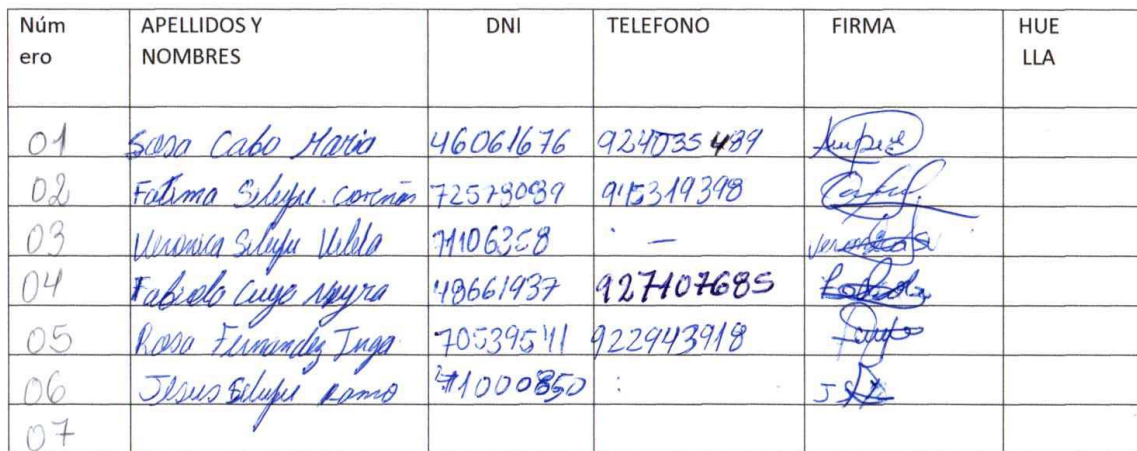 Núm APELLIDOS Y DNI TELEFONO FIRMA HUE
ero NOMBRES LLA
01 Sosa Cabo Maria 46061676 924035489
02 Fatima Silupu 72573089 945319398
03 Veronica Silupu Vilela 71106358 -
04 Fabiola Cuyo Nayra 48661937 927107685
05 Rosa Fernandez Inga 70539541 922943918
06 Jesus Silupu Ramo 41000850
07